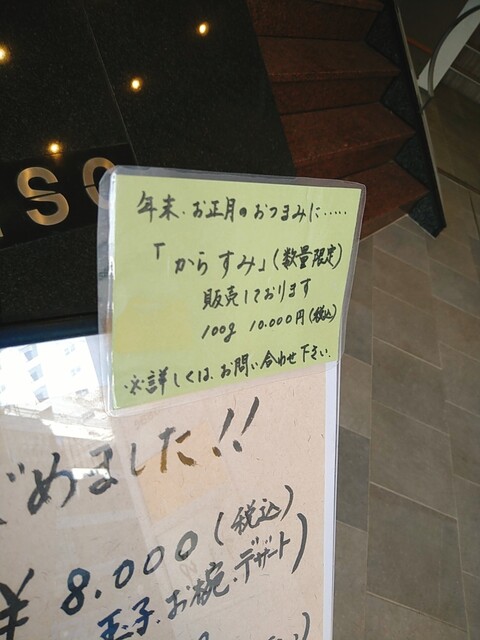 年末、お正月のおつまみに‥‥‥
「からすみ」(数量限定)
販売しております
100g 10.000円(税込)
※詳しくは、お問い合わせ下さい。
じめました!!
8.000(税込)
玉子、お椀、デザート)